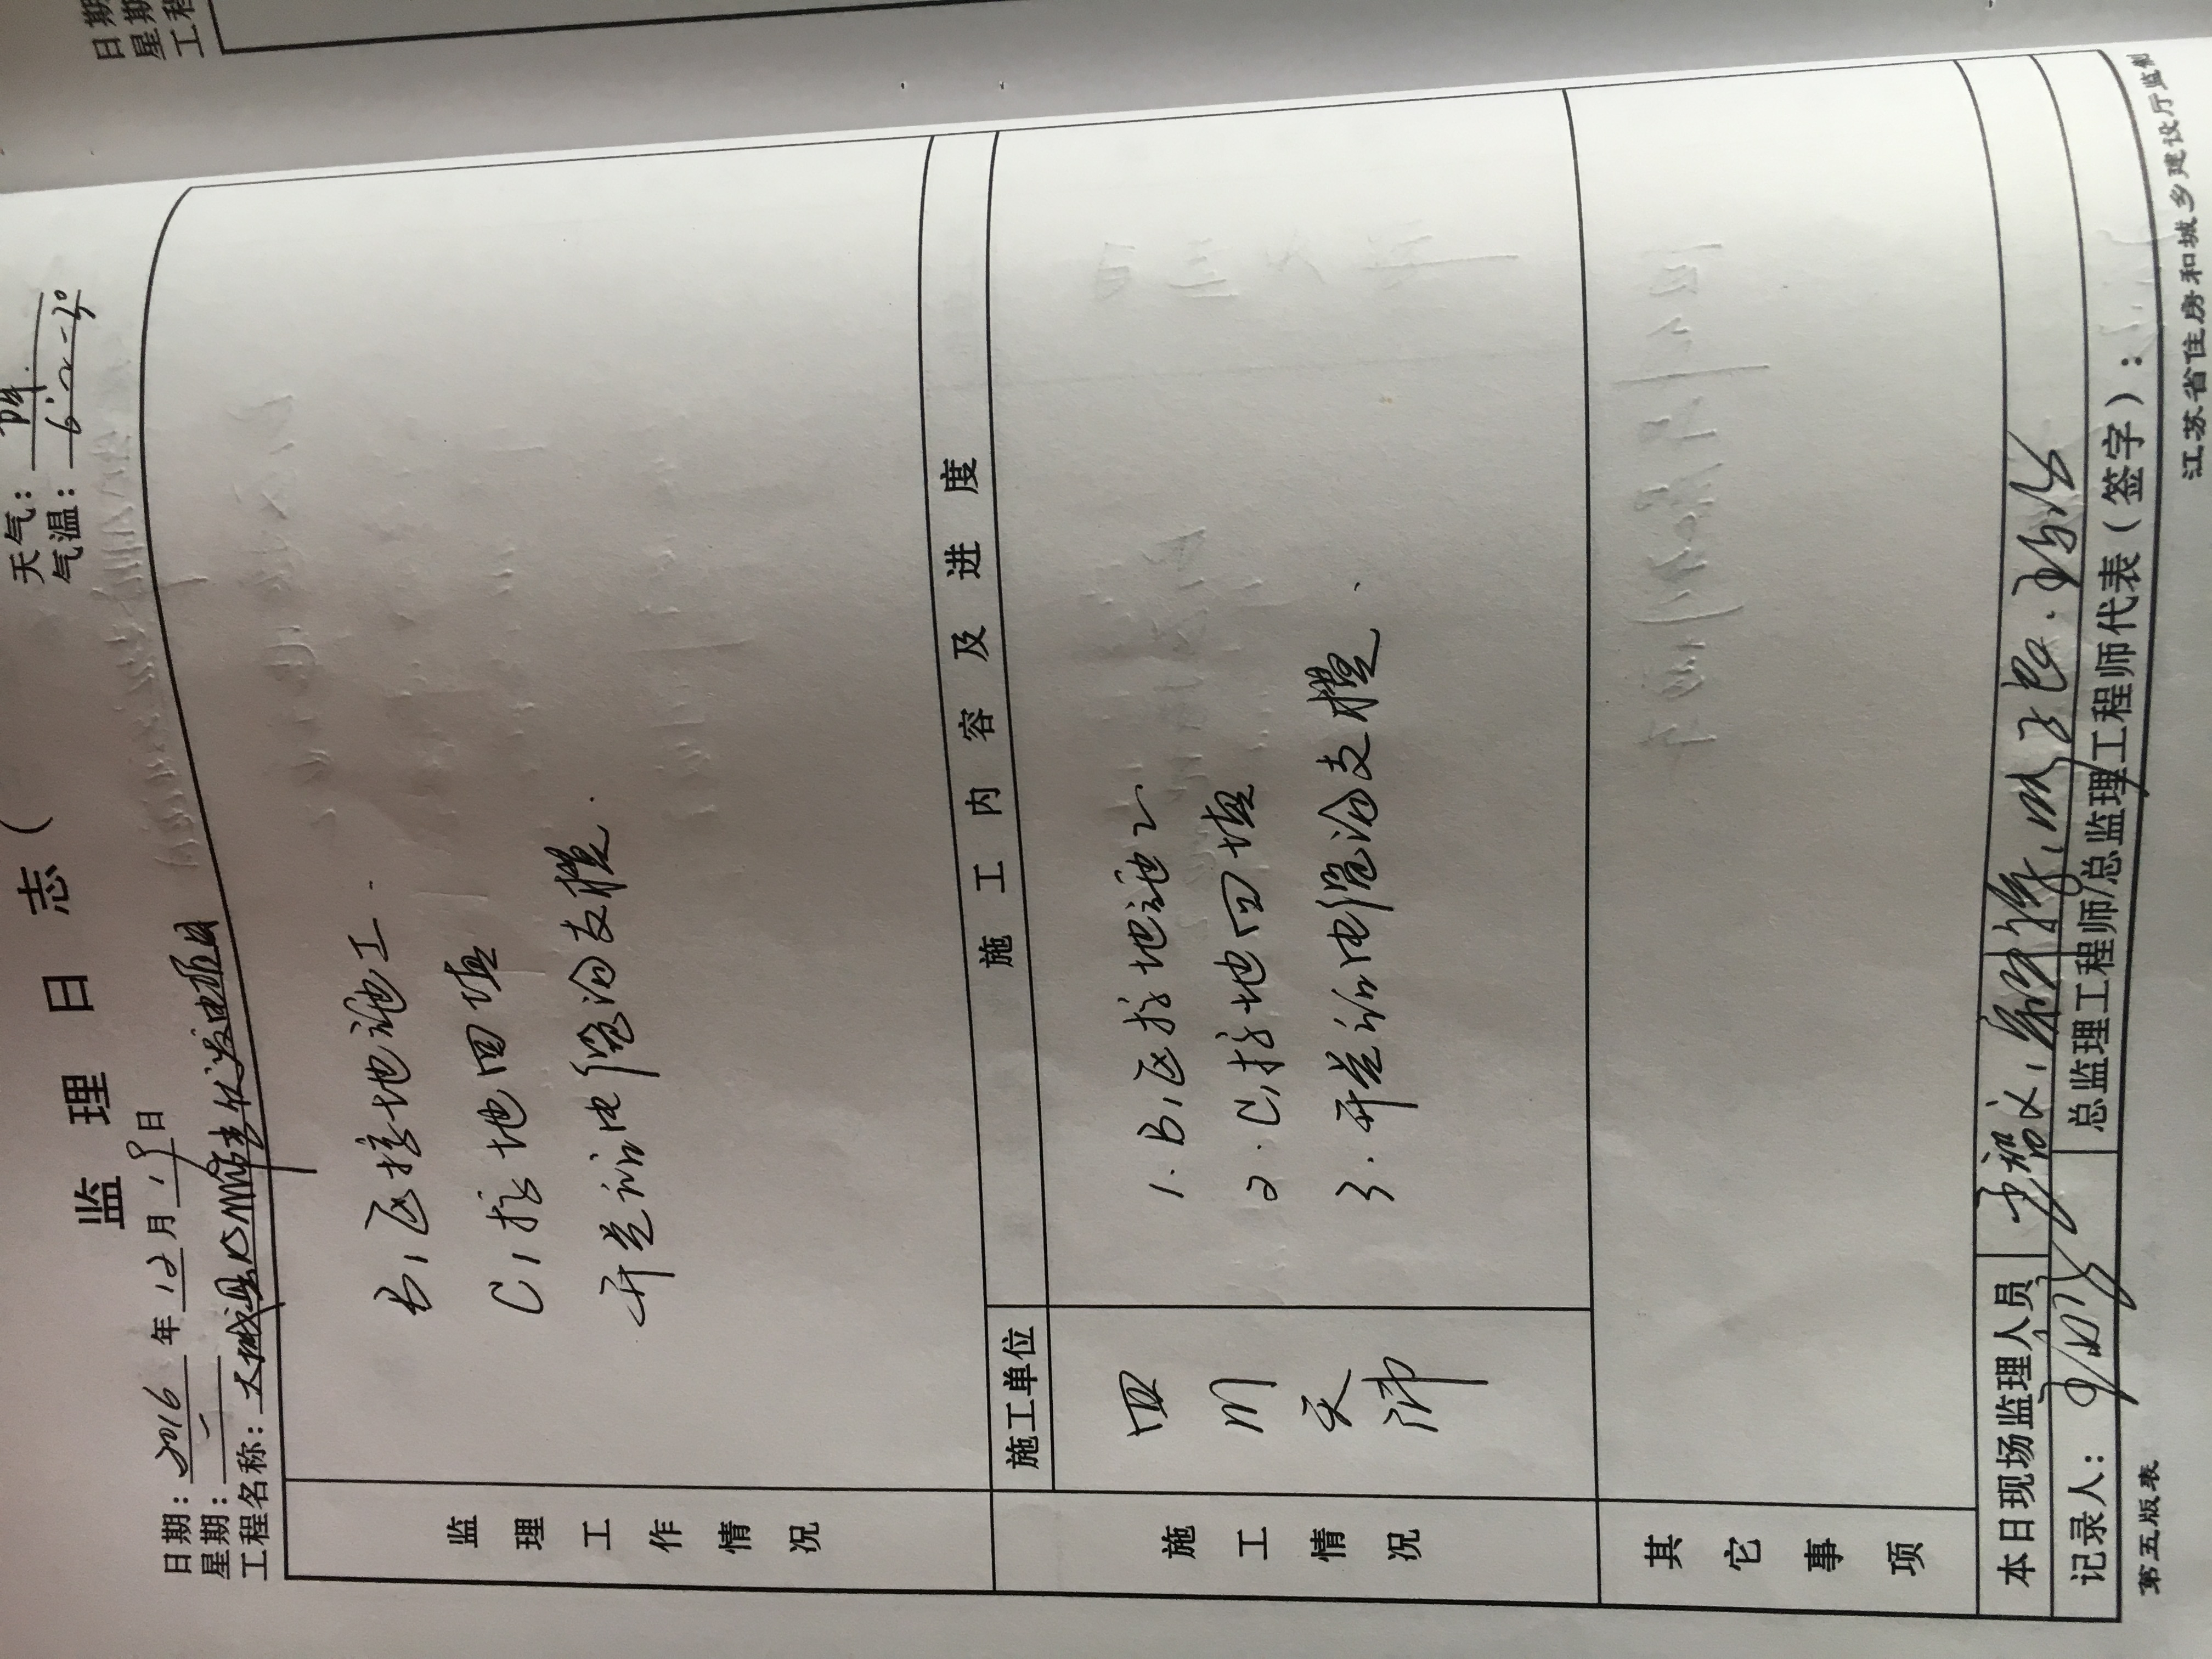 日期
星期
工程
监理日志（
日期：2016年12月19日
天气：晴
星期：一
气温：
工程名称：大城县
监理工作情况
B1区接地施工.
C1接地回填
开关站电缆沟支模.
施工单位
施工内容及进度
施工情况
四川天沛
1.B1区接地施工
2.C1接地回填
3.开关站电缆沟支模.
其它事项
本日现场监理人员
记录人：
总监理工程师/总监理工程师代表（签字）：
第五版表
江苏省住房和城乡建设厅监制